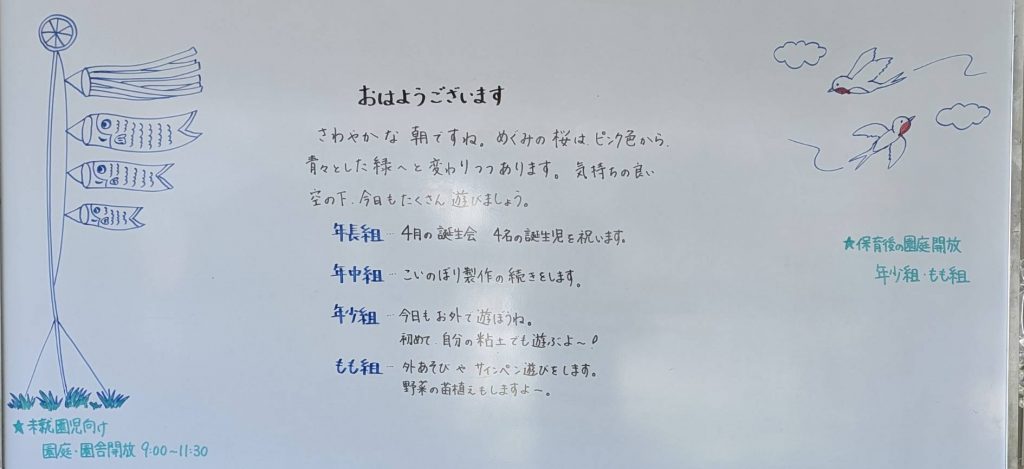 おはようございます
さわやかな 朝ですね。めぐみの 桜は ピンク色から、
青々とした 緑へと 変わりつつあります。気持ちの 良い
空の下、今日も たくさん 遊びましょう。
年長組…4月の誕生会 4名の誕生児を祝います。
年中組…こいのぼり製作の続きをします。
年少組…今日も お外で 遊ぼうね。
初めて、自分の粘土でも遊ぶよ～!
もも組…外あそび や サインペン遊びをします。
野菜の苗植えもしますよ～。
★保育後の園庭開放
年少組・もも組
★未就園児向け
園庭・園舎開放 9:00～11:30